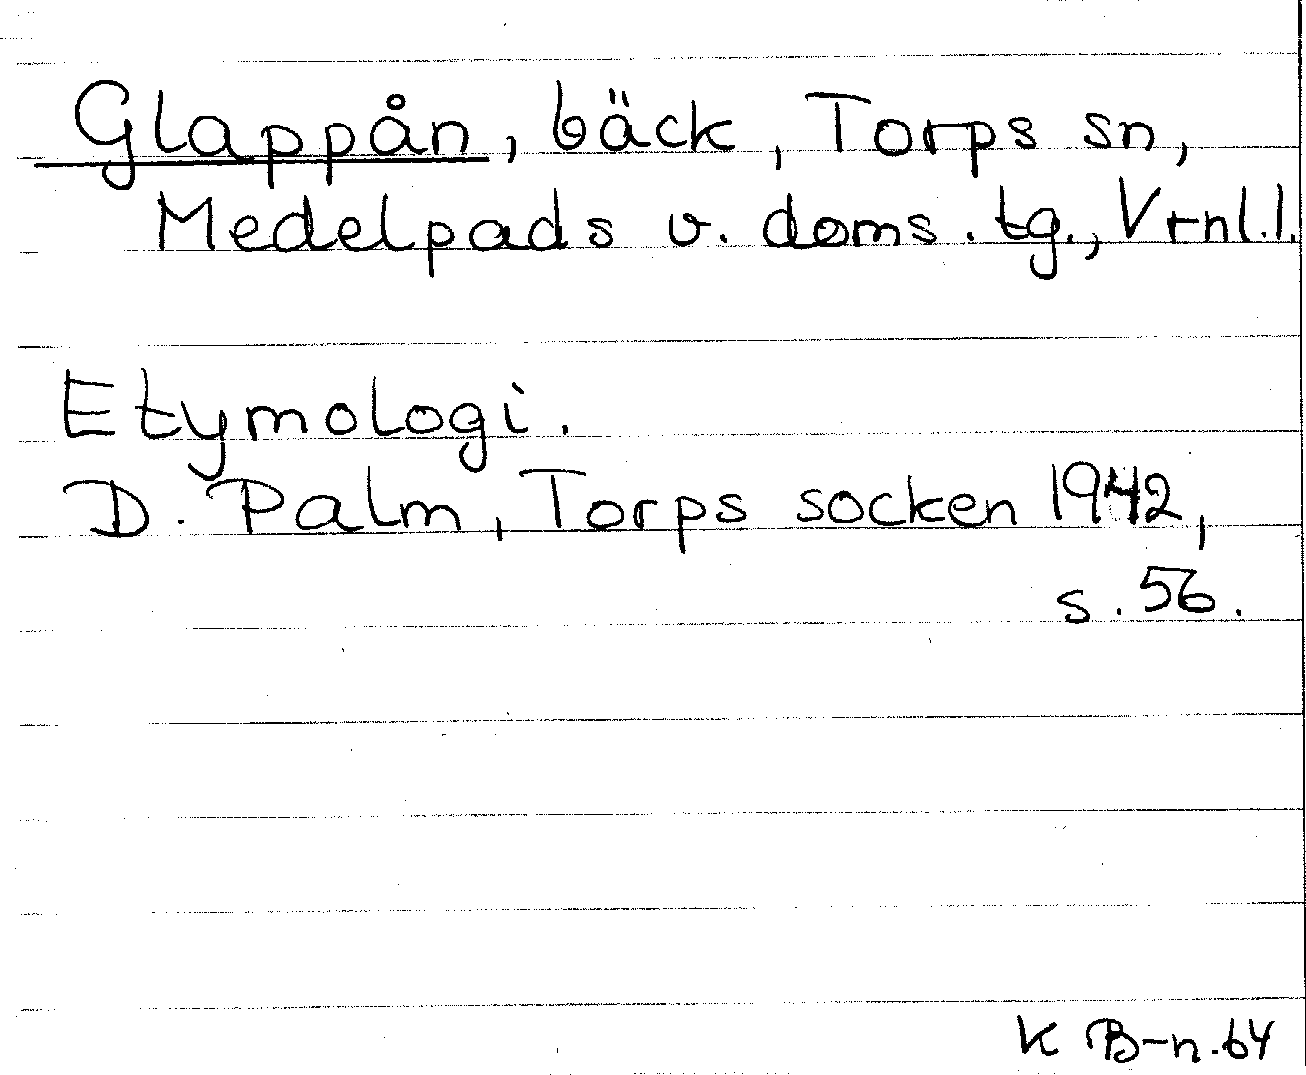 Glappån, bäck, Torps sn,
Medelpads v. doms. tg., Vrnl.l.
Etymologi.
D. Palm, Torps socken 1942,
s. 56.
K B-n. 64